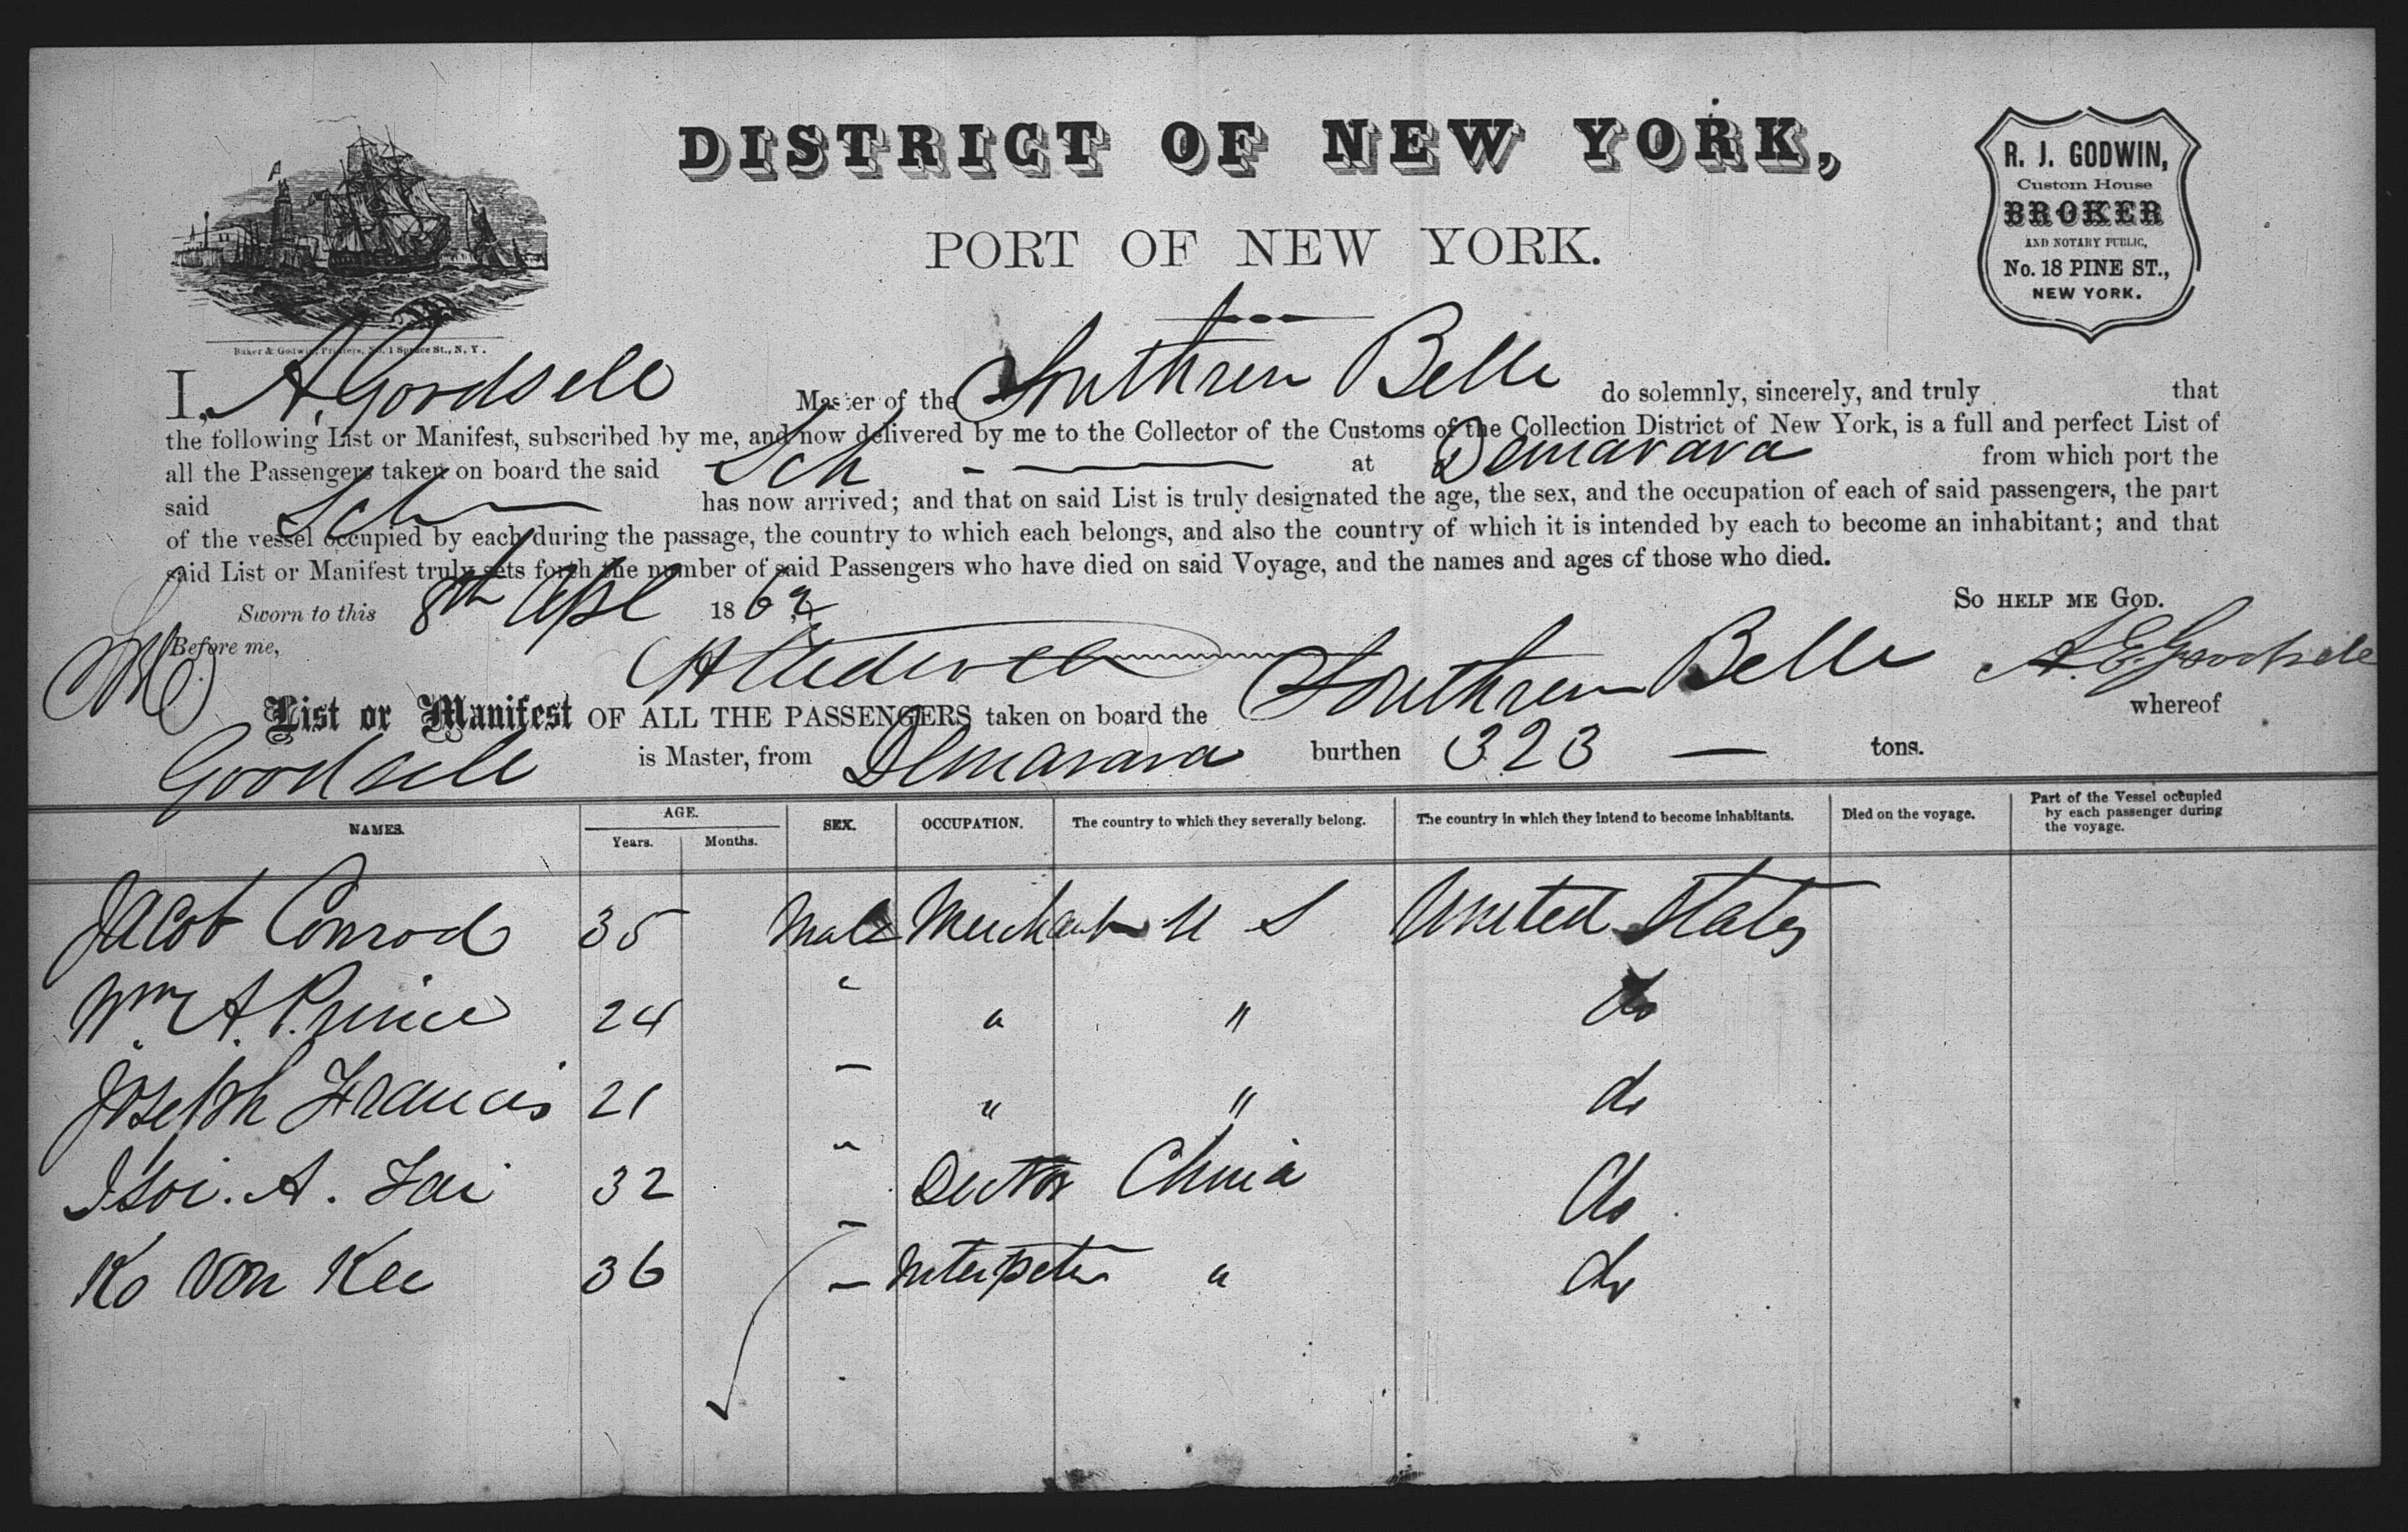 DISTRICT OF NEW YORK,
PORT OF NEW YORK.
R. J. GODWIN,
Custom House
BROKER
AND NOTARY PUBLIC,
No. 18 PINE ST.,
NEW YORK.
Baker & Godwin, Printers, No. 1 Spruce St., N. Y.
I, A. Goodsell Master of the Southren Belle do solemnly, sincerely, and truly that
the following List or Manifest, subscribed by me, and now delivered by me to the Collector of the Customs of the Collection District of New York, is a full and perfect List of
all the Passengers taken on board the said Sch at Demarara from which port the
said Sch has now arrived; and that on said List is truly designated the age, the sex, and the occupation of each of said passengers, the part
of the vessel occupied by each during the passage, the country to which each belongs, and also the country of which it is intended by each to become an inhabitant; and that
said List or Manifest truly sets forth the number of said Passengers who have died on said Voyage, and the names and ages of those who died.
Sworn to this 8th Apl 186 So HELP ME GOD.
Before me, A. E. Goodsele
List or Manifest OF ALL THE PASSENGERS taken on board the Southren Belle whereof
Goodsell is Master, from Demarara burthen 323 — tons.
NAMES. AGE. Years. Months. SEX. OCCUPATION. The country to which they severally belong. The country in which they intend to become inhabitants. Died on the voyage. Part of the Vessel occupied by each passenger during the voyage.
Jacob Conrod 35 Male Merchant U S United States
Wm A. Prince 24 " " " do
Joseph Francis 21 — " " do
Tsoi. A. Fai 32 " Doctor China do
Ko Von Kee 36 — Interpeter " do